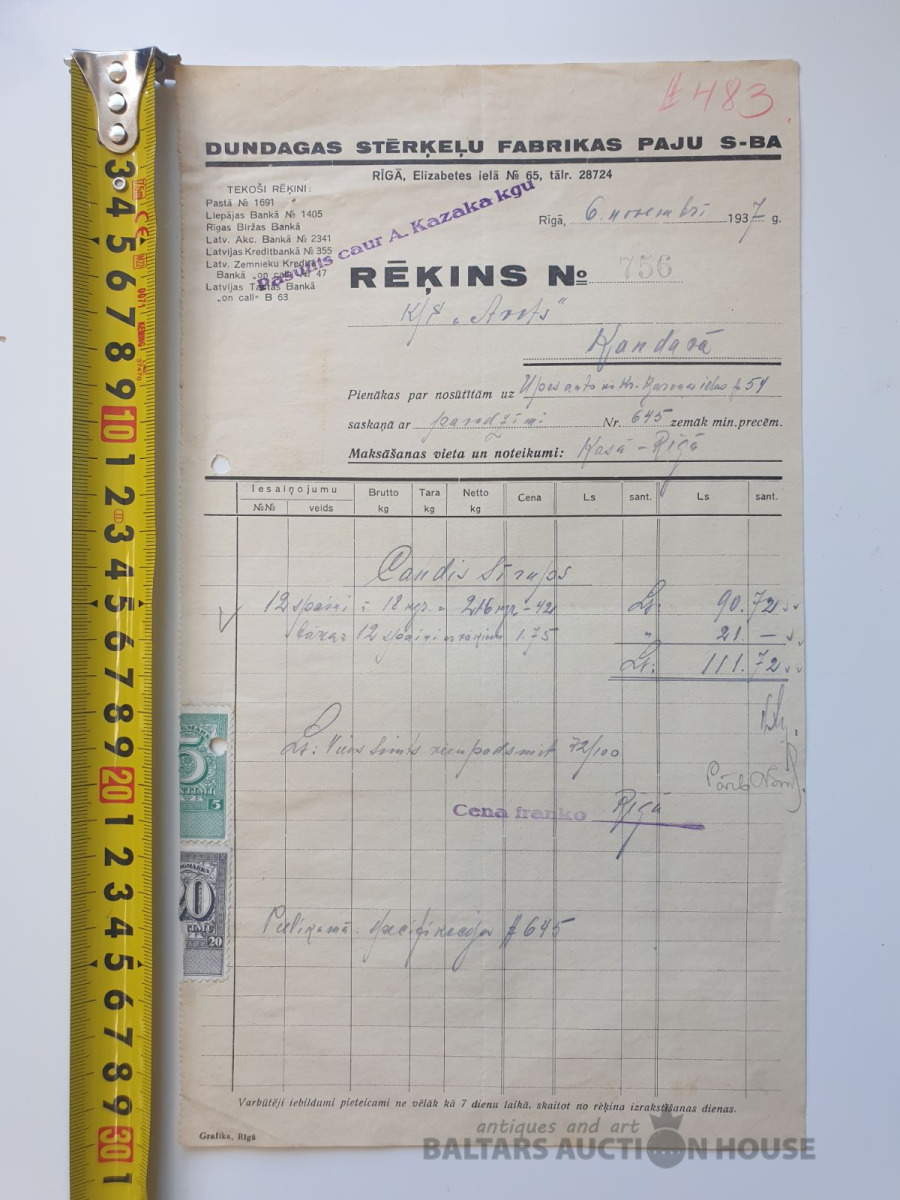 483
DUNDAGAS STĒRĶEĻU FABRIKAS PAJU S-BA
RĪGĀ, Elizabetes ielā № 65, tālr. 28724
TEKOŠI RĒĶINI:
Pastā № 1691
Liepājas Bankā № 1405
Rīgas Biržas Bankā
Latv. Akc. Bankā № 2341
Latvijas Kreditbankā № 355
Latv. Zemnieku Kredita
Bankā „on call" № 47
Latvijas Tautas Bankā
„on call" B 63
Pasūtīts caur A. Kazaka kgu
Rīgā, 6. novembrī 1937 g.
RĒĶINS № 756
K/S „Arots"
Kandavā
Pienākas par nosūtītām uz Upes auto Kr. Barona ielas № 54
saskaņā ar pavadzīmi Nr. 645 zemāk min. precēm.
Maksāšanas vieta un noteikumi: Kasā - Rīgā
Iesaiņojumu Brutto kg Tara kg Netto kg Cena Ls sant. Ls sant.
№№ veids
Candis Sīrups
12 spaiņi à 18 kgr. = 216 kgr -42 Ls. 90.72
12 spaiņi 1.75 " 21.—
Ls: 111.72
Ls: Viens simts vienpadsmit 72/100
Cena franko Rīgā
5
5
20
20
Pielikumā: specifikacija № 645
Varbūtēji iebildumi pieteicami ne vēlāk kā 7 dienu laikā, skaitot no rēķina izrakstīšanas dienas.
Grafika, Rīgā
antiques and art
BALTARS AUCTION HOUSE
3 4 5 6 7 8 9 10 1 2 3 4 5 6 7 8 9 20 1 2 3 4 5 6 7 8 9 30 1